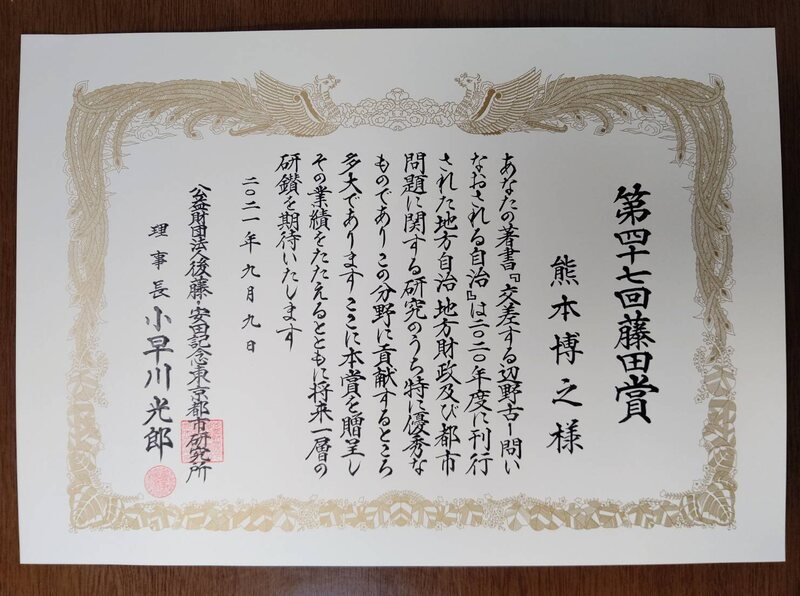 第四十七回藤田賞
熊本博之様
あなたの著書『交差する辺野古ー問い
なおされる自治』は二〇二〇年度に刊行
された地方自治 地方財政及び都市
問題に関する研究のうち特に優秀な
ものであり この分野に貢献するところ
多大であります ここに本賞を贈呈し
その業績をたたえるとともに将来一層の
研鑽を期待いたします
二〇二一年九月九日
公益財団法人後藤・安田記念東京都市研究所
理事長 小早川光郎